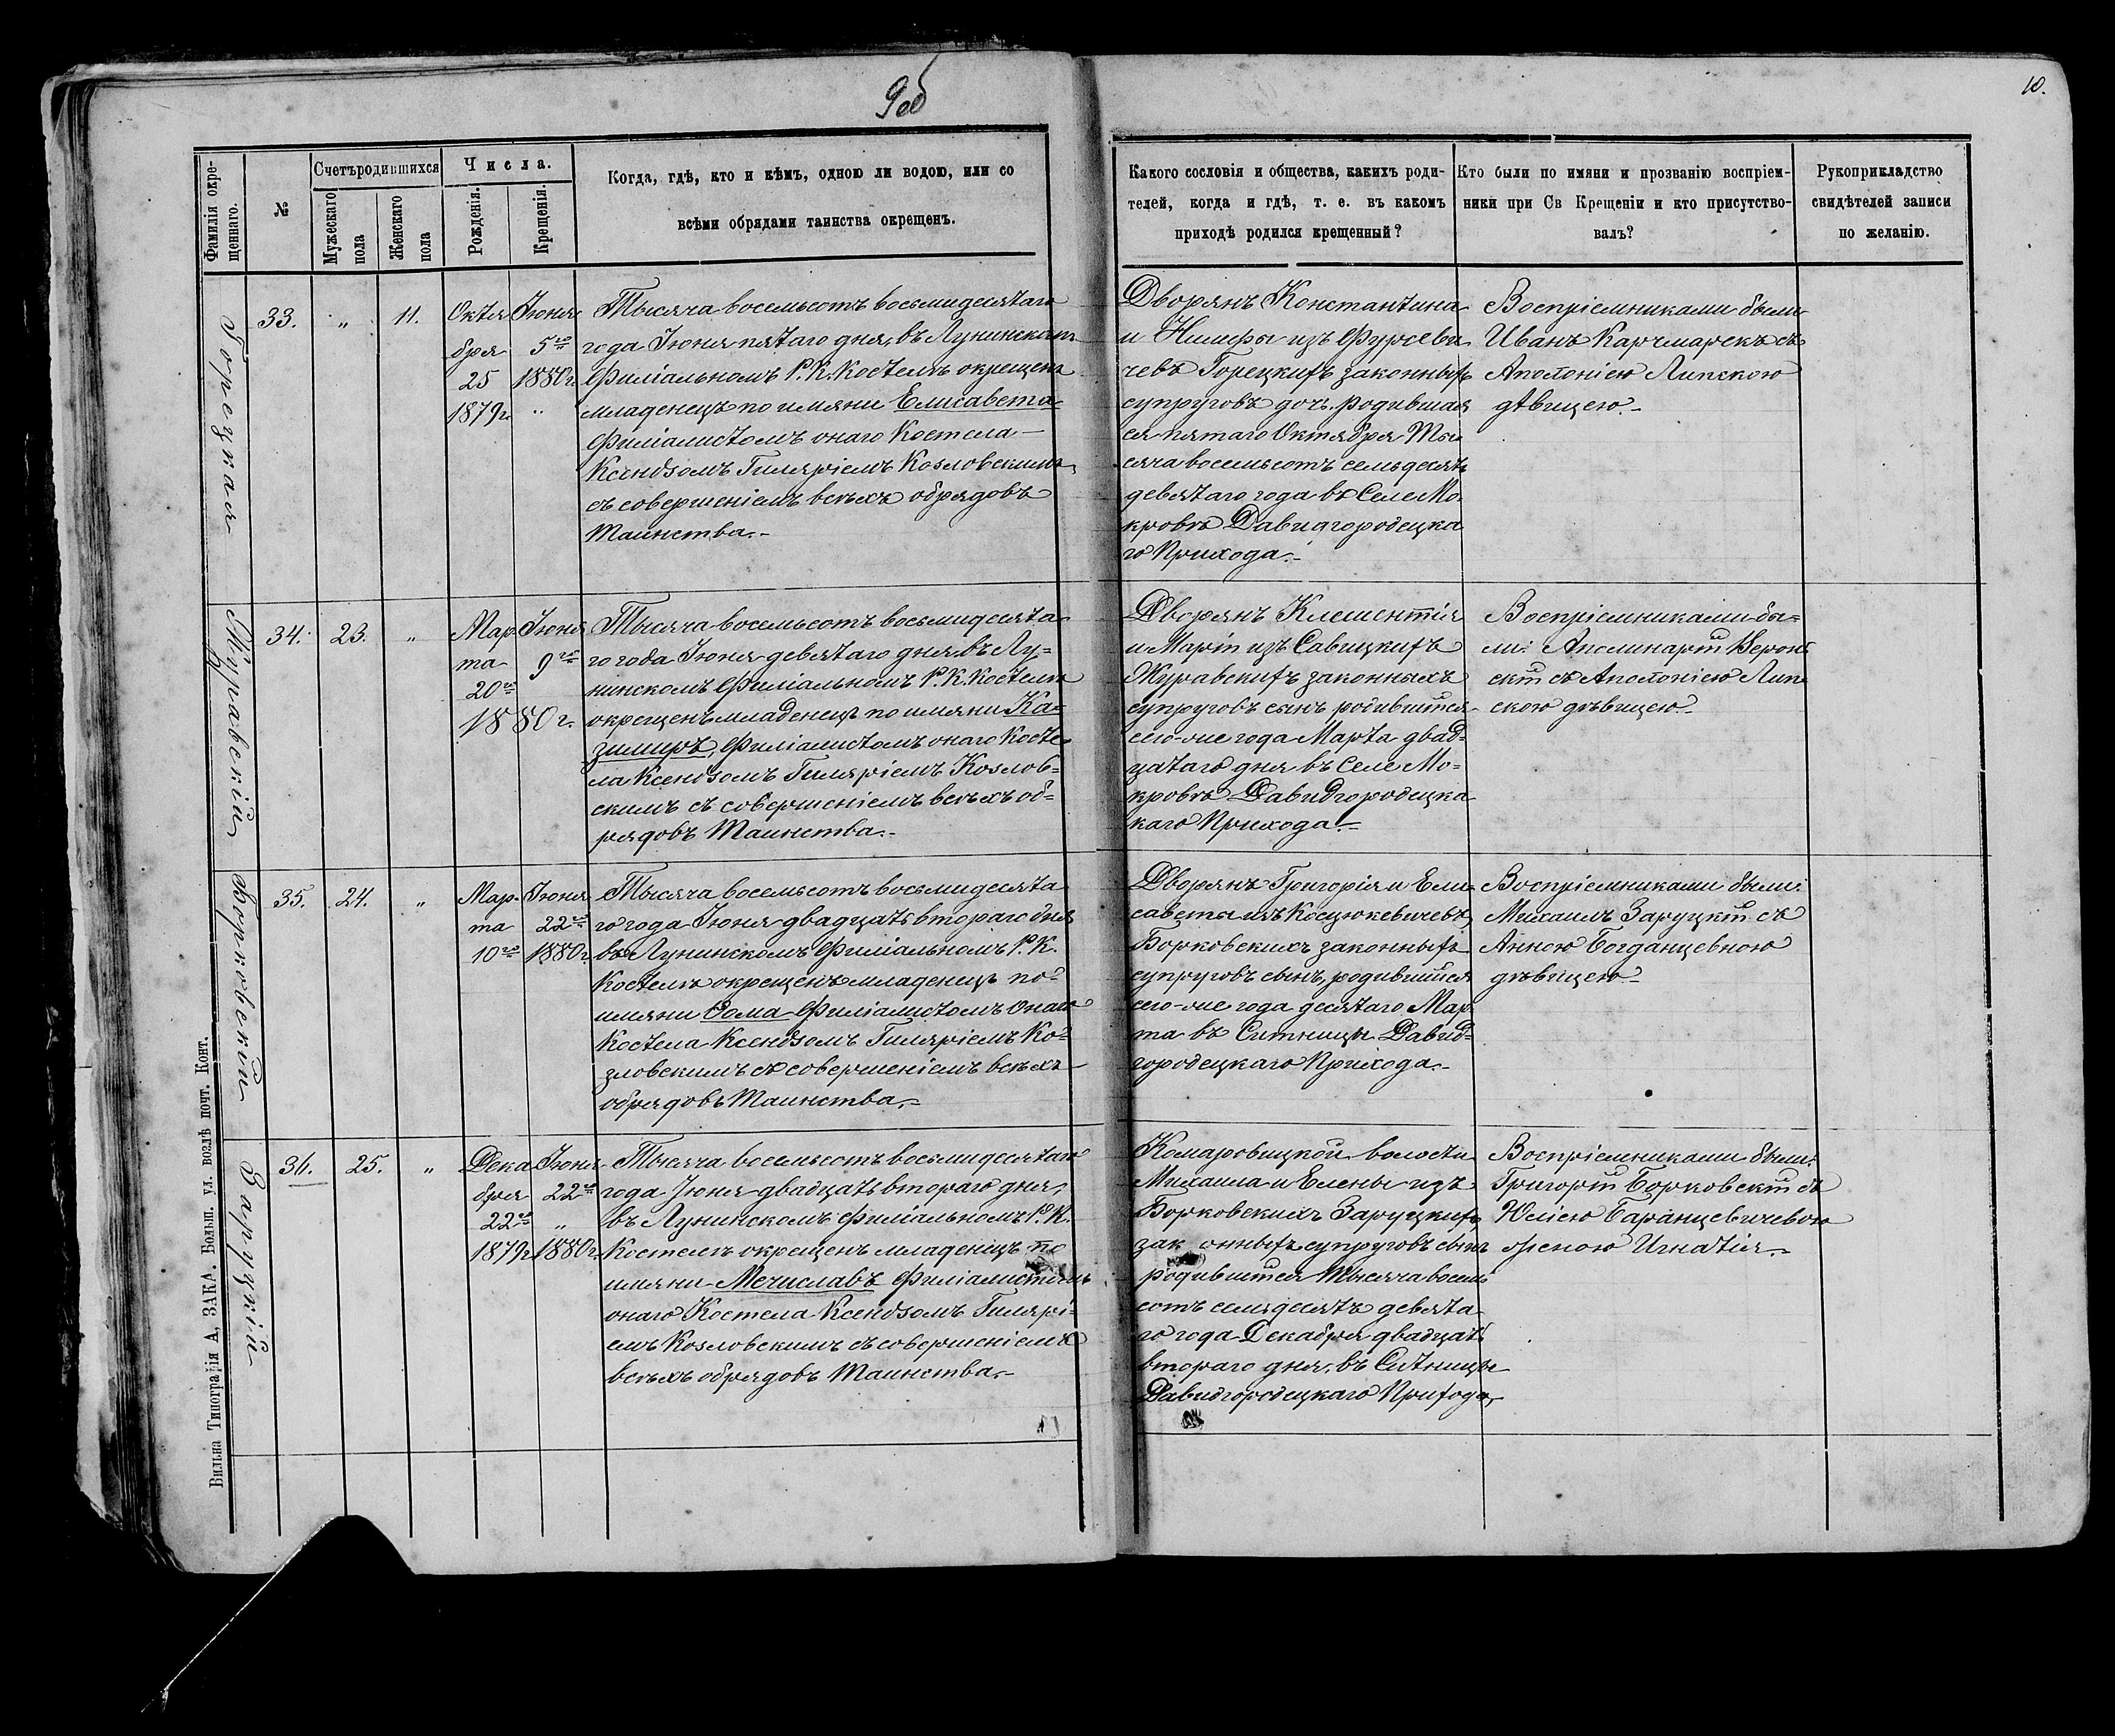 9об
10.
Фамилія окре-
щеннаго.
№
Счетъ родившихся
Мужескаго
пола
Женскаго
пола
Числа.
Рожденія.
Крещенія.
Когда, гдѣ, кто и кѣмъ, одною ли водою, или со
всѣми обрядами таинства окрещенъ.
Какого сословія и общества, какихъ роди-
телей, когда и гдѣ, т. е. въ какомъ
приходѣ родился крещенный?
Кто были по имяни и прозванію воспріем-
ники при Св Крещеніи и кто присутство-
валъ?
Рукоприкладство
свидѣтелей записи
по желанію.
Горецкая
33.
„
11.
Октя
бря
25
1879г.
Іюня
5го
1880г.
„
Тысяча восемьсотъ восьмидесятаго
года Іюня пятаго дня, въ Лунинскомъ
Филіальномъ Р. К. Костелѣ окрещена
младенецъ по имяни Елисавета
Филіалистомъ онаго Костела
Ксендзомъ Гиляріемъ Козловскимъ
съ совершеніемъ всѣхъ обрядовъ
Таинства.-
Дворянъ Константина
и Нимфы изъ Фурсеви
чевъ Горецкихъ законныхъ
супруговъ дочь, родившая
ся пятаго Октября Ты
сяча восемьсотъ семьдесятъ
девятаго года въ Селе Мо
кровѣ Давидгородецка
го Прихода.-
Воспріемниками были
Иванъ Карчмарекъ съ
Аполоніею Липскою
дѣвицею.-
Журавскій
34.
23.
„
Мар
та
20го
1880г.
Іюня
9го
Тысяча восемьсотъ восьмидесята
го года Іюня девятаго дня въ Лу=
нинскомъ Филіальномъ Р. К. Костелѣ
окрещенъ младенецъ по имяни Ка=
зимиръ, Филіалистомъ онаго Косте
ла Ксендзомъ Гиляріемъ Козлов=
скимъ съ совершеніемъ всѣхъ об=
рядовъ Таинства.-
Дворянъ Клементія
и Маріи изъ Савицкихъ
Журавскихъ законныхъ
супруговъ сынъ, родившійся
сего-же года Марта двад=
цатаго дня въ Селе Мо=
кровѣ Давидгородецка
каго Прихода.-
Воспріемниками бы=
ли: Аполинарій Керон
скій съ Аполоніею Лип
скою дѣвицею.-
Борковскій
35.
24.
„
Мар-
та
10го
Іюня
22го
1880г.
Тысяча восемьсотъ восьмидесята
го года Іюня двадцать втораго дня
въ Лунинскомъ Филіальномъ Р. К.
Костелѣ окрещенъ младенецъ по-
имяни Ѳома Филіалистомъ Онаго
Костела Ксендзомъ Гиляріемъ Ко-
зловскимъ съ совершеніемъ всѣхъ
обрядовъ Таинства.-
Дворянъ Григорія и Ели
саветы изъ Косцюкевичевъ,
Борковскихъ законныхъ
супруговъ сынъ, родившійся
сего-же года десятаго Мар
та въ Ситницы Давид=
городецкаго Прихода.-
Воспріемниками были:
Михаилъ Заруцкій съ
Анною Богданцевною
дѣвицею.-
Заруцкій
36.
25.
„
Дека
бря
22го
1879г.
Іюня
22го
„
1880г.
Тысяча восемьсотъ восьмидесятаго
года Іюня двадцать втораго дня,
въ Лунинскомъ Филіальномъ Р. К.
Костелѣ окрещенъ младенецъ по
имяни Мечиславъ Филіалистомъ
онаго Костела Ксендзомъ Гилярі=
емъ Козловскимъ съ совершеніемъ
всѣхъ обрядовъ Таинства.-
Комаровицкой волости
Михаила и Елены изъ
Борковскихъ Заруцкихъ
законныхъ супруговъ сынъ
родившійся Тысяча восемь
сотъ семьдесятъ девята
го года Декабря двадцать
втораго дня, въ Ситницы
Давидгородецкаго Прихода,
Воспріемниками были:
Григорій Борковскій съ
Юліею Баранцевичевою
женою Игнатія.-
Вильна Типографія А, ЗАКА. Больш. ул. возлѣ почт. Конт.